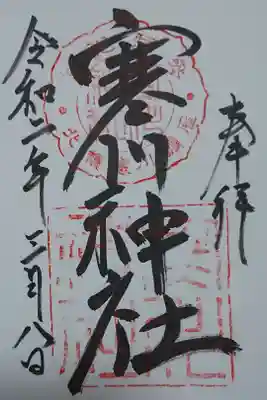 奉拝
寒川神社
令和二年三月八日